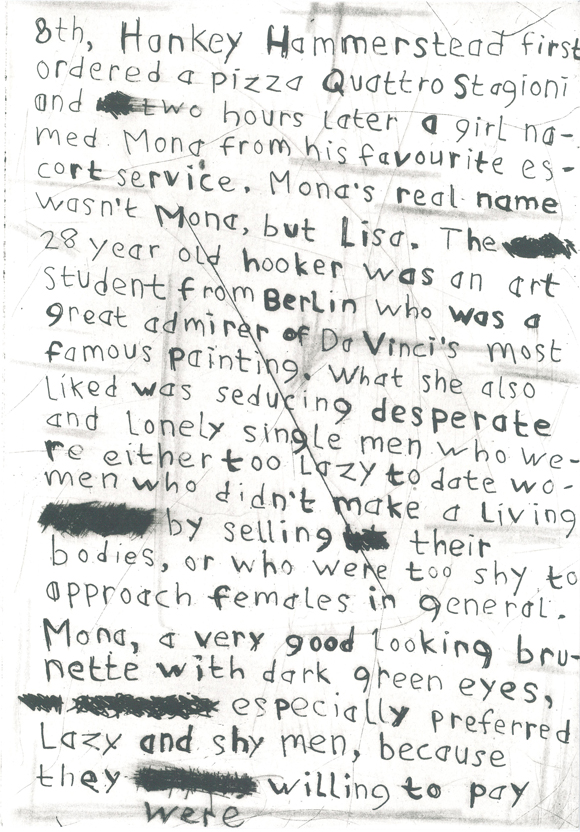 8th, Hankey Hammerstead first
ordered a pizza Quattro Stagioni
and two hours later a girl na-
med Mona from his favourite es-
cort service. Mona's real name
wasn't Mona, but Lisa. The
28 year old hooker was an art
student from Berlin who was a
great admirer of Da Vinci's most
famous painting. What she also
liked was seducing desperate
and lonely single men who we-
re either too lazy to date wo-
men who didn't make a living
by selling their
bodies, or who were too shy to
approach females in general.
Mona, a very good looking bru-
nette with dark green eyes,
especially preferred
lazy and shy men, because
they willing to pay
were